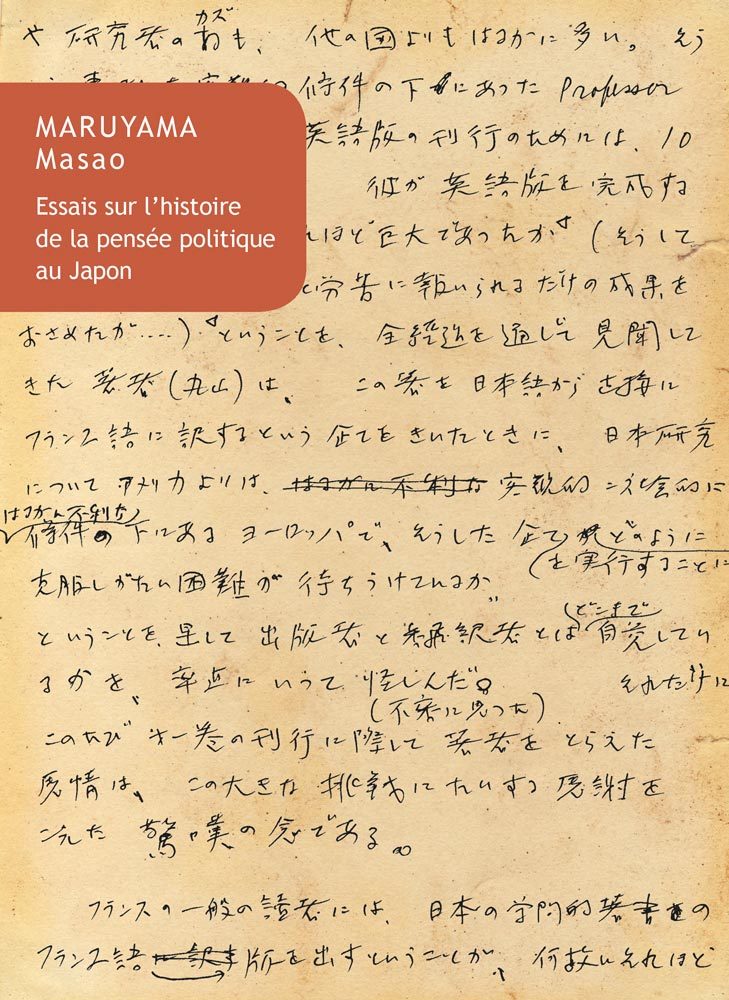 カズ
や 研究者の数も、 他の国よりもはるかに多い。 そう
條件の下にあった Professor
MARUYAMA
Masao
Essais sur l'histoire
de la pensée politique
au Japon
英語版の刊行のためには、10
彼が 英語版を完成する
れほど巨大であったか (そうして
と労苦に報いられるだけの成果を
おさめたが....) ということを、 全経過を通じて見聞して
きた 著者(丸山)は、 この著を日本語から直接に
フランス語に訳するという企てをきいたときに、 日本研究
について アメリカよりは、 はるかに不利な 客観的=社会的に
はるかに不利な
條件の下にある ヨーロッパで、そうした 企て がどのように
(を実行することに
克服しがたい困難が 待ちうけているか
どこまで
ということを、果して 出版者と翻訳者とは 自覚してい
るかを、 率直にいって 怪しんだ。 それだけに
(不審に思った)
このたび 第一巻の刊行に際して 著者を とらえた
感情は、 この大きな 挑戦にたいする 感謝を
こえた 驚嘆の念である。
フランスの一般の読者には、 日本の学問的著書の
フランス語 版を出すということが、 何故にそれほど